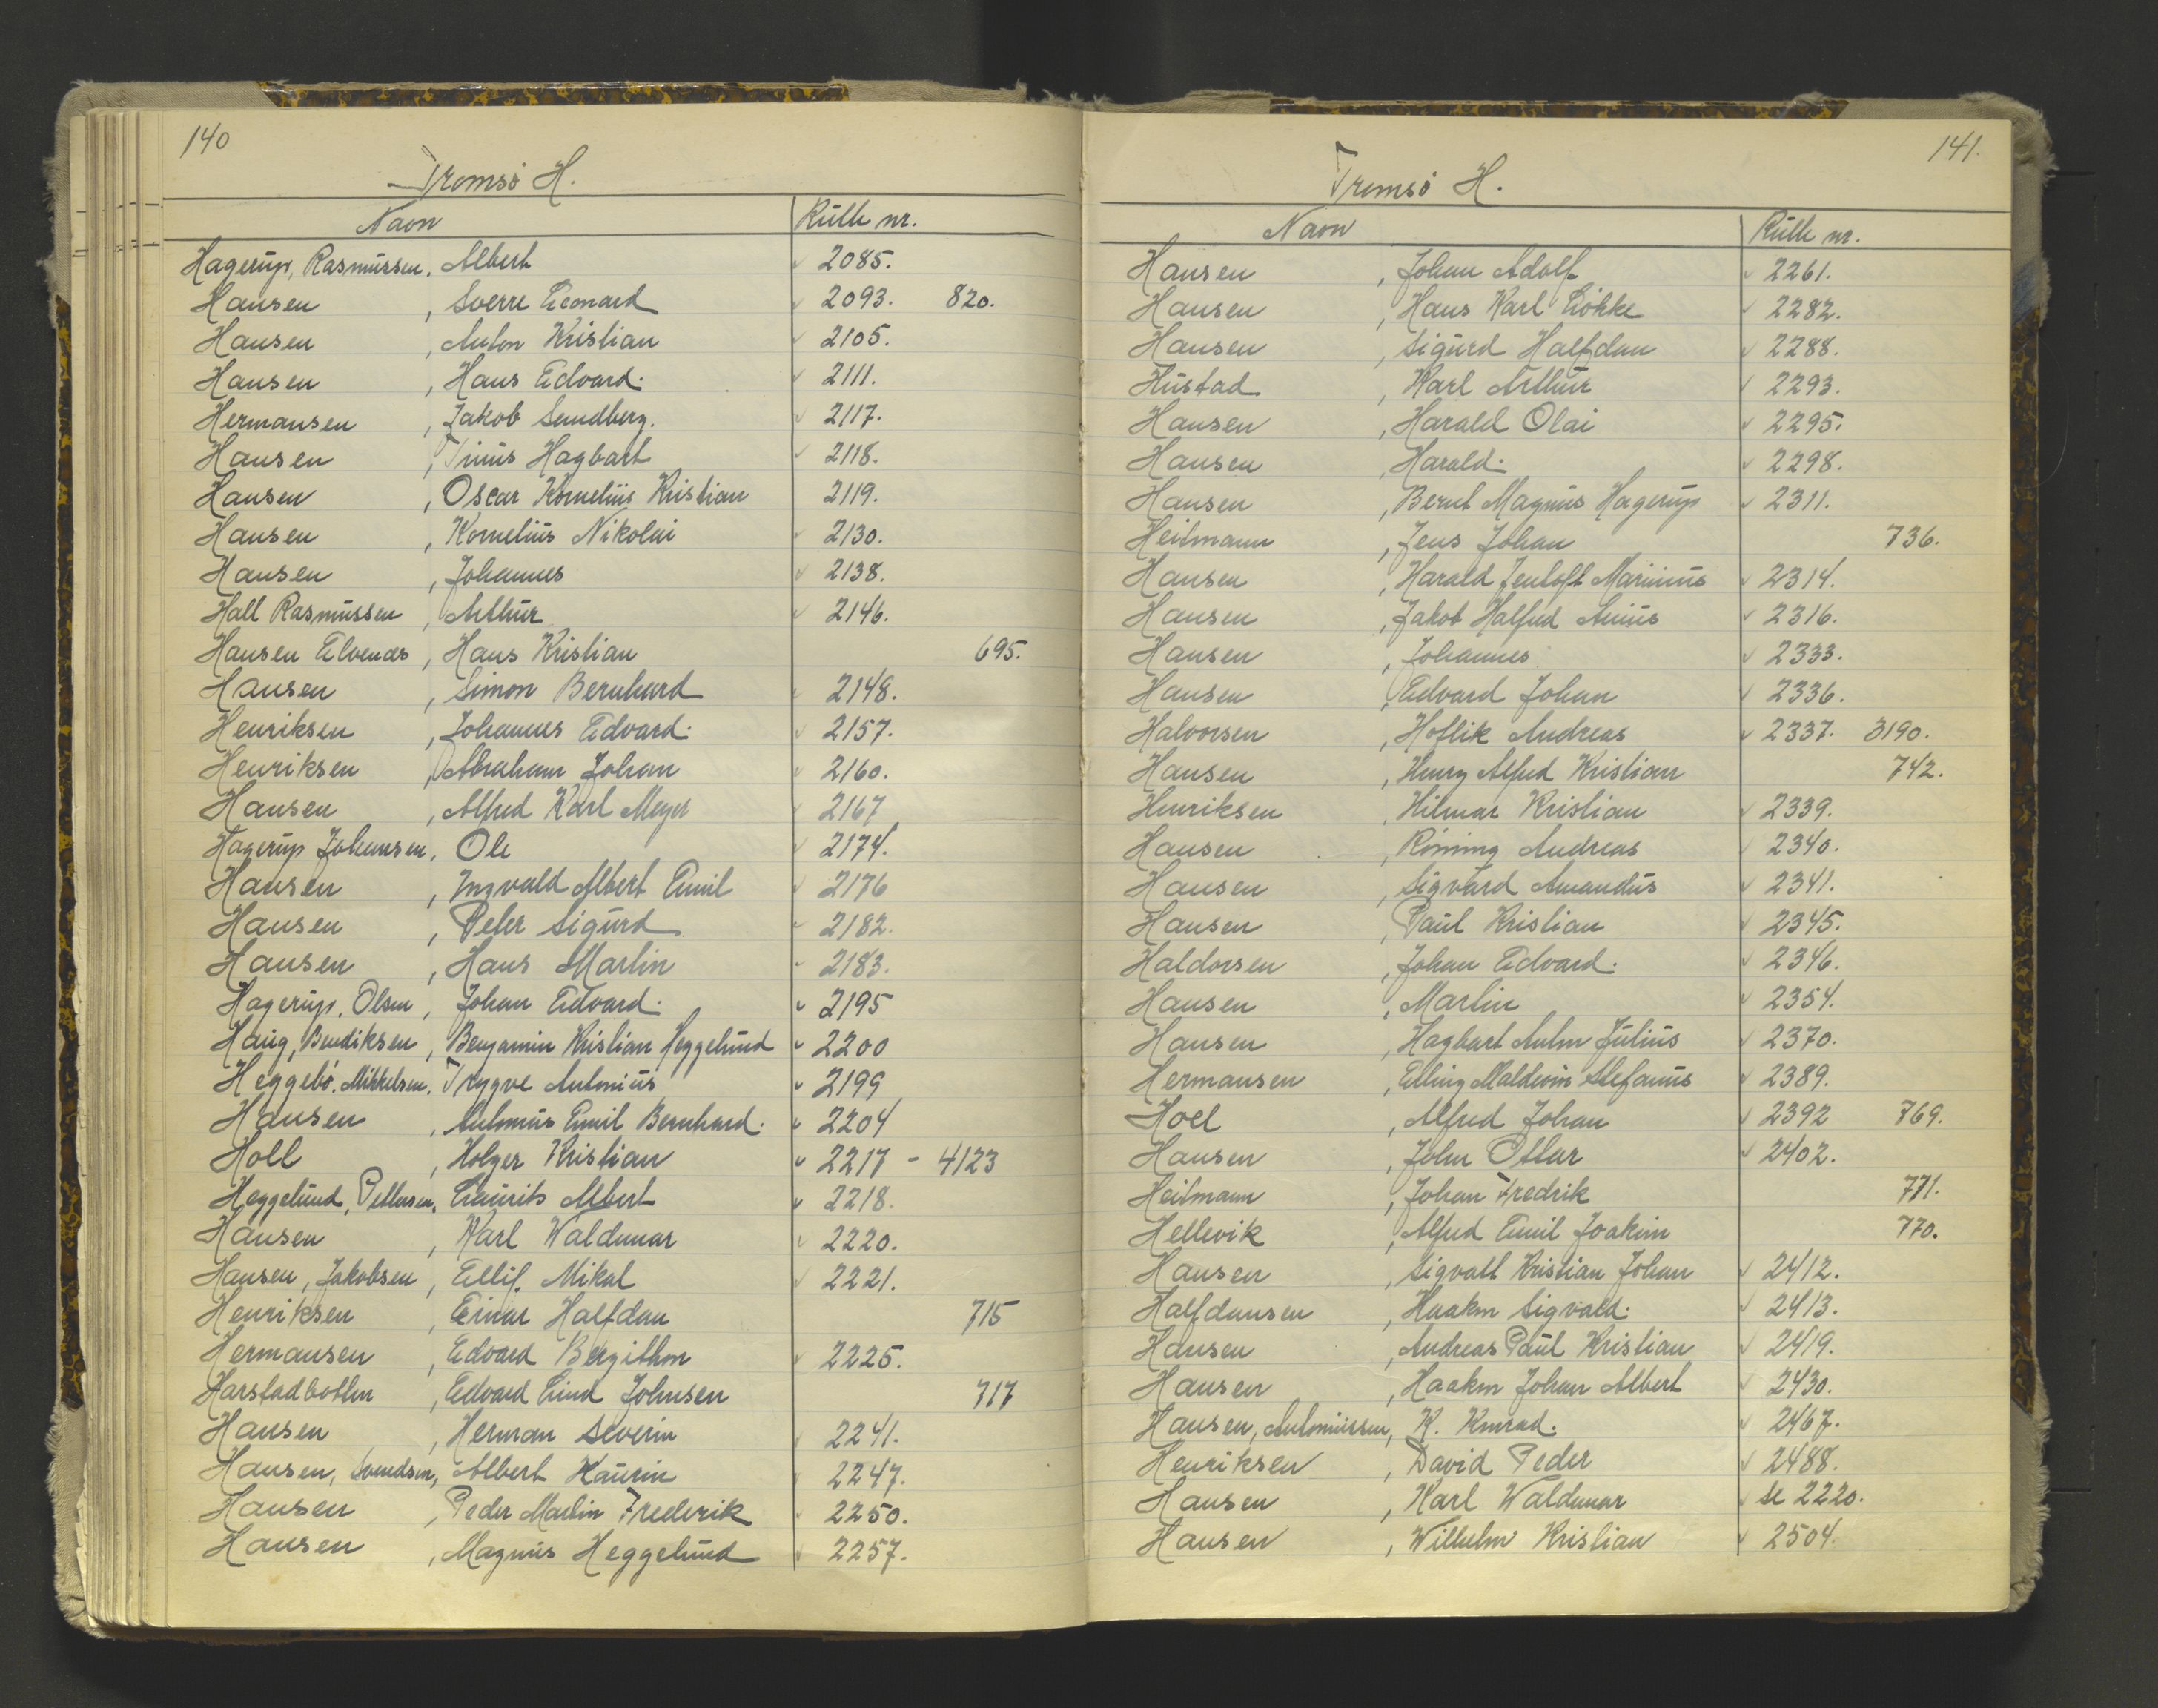 140
Tromsø H.
Navn Rulle nr.
Hagerup, Rasmussen, Albert 2085.
Hansen, Sverre Leonard 2093. 820.
Hansen, Anton Kristian 2105.
Hansen, Hans Edvard. 2111.
Hermansen, Jakob Sandberg. 2117.
Hansen, Trinus Hagbart 2118.
Hansen, Oscar Kornelius Kristian 2119.
Hansen, Kornelius Nikolai 2130.
Hansen, Johannes 2138.
Hall Rasmussen, Arthur 2146.
Hansen Elvenæs, Hans Kristian 695.
Hansen, Simon Bernhard 2148.
Henriksen, Johannes Edvard. 2157.
Henriksen, Abraham Johan 2160.
Hansen, Alfred Karl Meyer 2167
Hagerup Johansen, Ole 2174.
Hansen, Ingvald Albert Emil 2176
Hansen, Peter Sigurd 2182.
Hansen, Hans Martin 2183.
Hagerup, Olsen, Johan Edvard. 2195
Haug, Bendiksen, Benjamin Kristian Heggelund 2200
Heggebø, Mikkelsen, Trygve Antonius 2199
Hansen, Antonius Emil Bernhard. 2204
Holl, Holger Kristian 2217 - 4123
Heggelund, Pettersen, Laurits Albert 2218.
Hansen, Karl Waldemar 2220.
Hansen, Jakobsen, Ellif. Mikal 2221.
Henriksen, Einar Halfdan 715
Hermansen, Edvard Bergithon 2225.
Harstadbotten, Edvard Lind Johnsen 717
Hansen, Herman Severin 2241.
Hansen, Svendsen, Albert Kaurin 2247.
Hansen, Peder Martin Frederik 2250.
Hansen, Magnus Heggelund 2257.
141.
Tromsø H.
Navn Rulle nr.
Hansen, Johan Adolf 2261.
Hansen, Hans Karl Løkke 2282.
Hansen, Sigurd Halfdan 2288.
Hustad, Karl Arthur 2293.
Hansen, Harald Olai 2295.
Hansen, Harald. 2298.
Hansen, Bernt Magnus Hagerup 2311.
Heitmann, Jens Johan 736.
Hansen, Harald Jentoft Marinius 2314.
Hansen, Jakob Halfred 2316.
Hansen, Johannes 2333.
Hansen, Edvard Johan 2336.
Halvorsen, Hoflik Andreas 2337. 3190.
Hansen, Henry Alfred Kristian 742.
Henriksen, Hilmar Kristian 2339.
Hansen, Rønning Andreas 2340.
Hansen, Sigvard Amandus 2341.
Hansen, Paul Kristian 2345.
Haldorsen, Johan Edvard. 2346.
Hansen, Martin 2354.
Hansen, Hagbart Anton Julius 2370.
Hermansen, Elling Maldevin Stefanus 2389.
Hoel, Alfred Johan 2392 769.
Hansen, John Ottar 2402.
Heitmann, Johan Fredrik 771.
Hellevik, Alfred Emil Joakim 770.
Hansen, Sigvalt Kristian Johan 2412.
Halfdansen, Haakon Sigvald. 2413.
Hansen, Andreas Paul Kristian 2419.
Hansen, Haakon Johan Albert 2430.
Hansen, Antoniussen, K. Konrad. 2467.
Henriksen, David Peder 2488.
Hansen, Karl Waldemar se 2220.
Hansen, Wilhelm Kristian 2504.